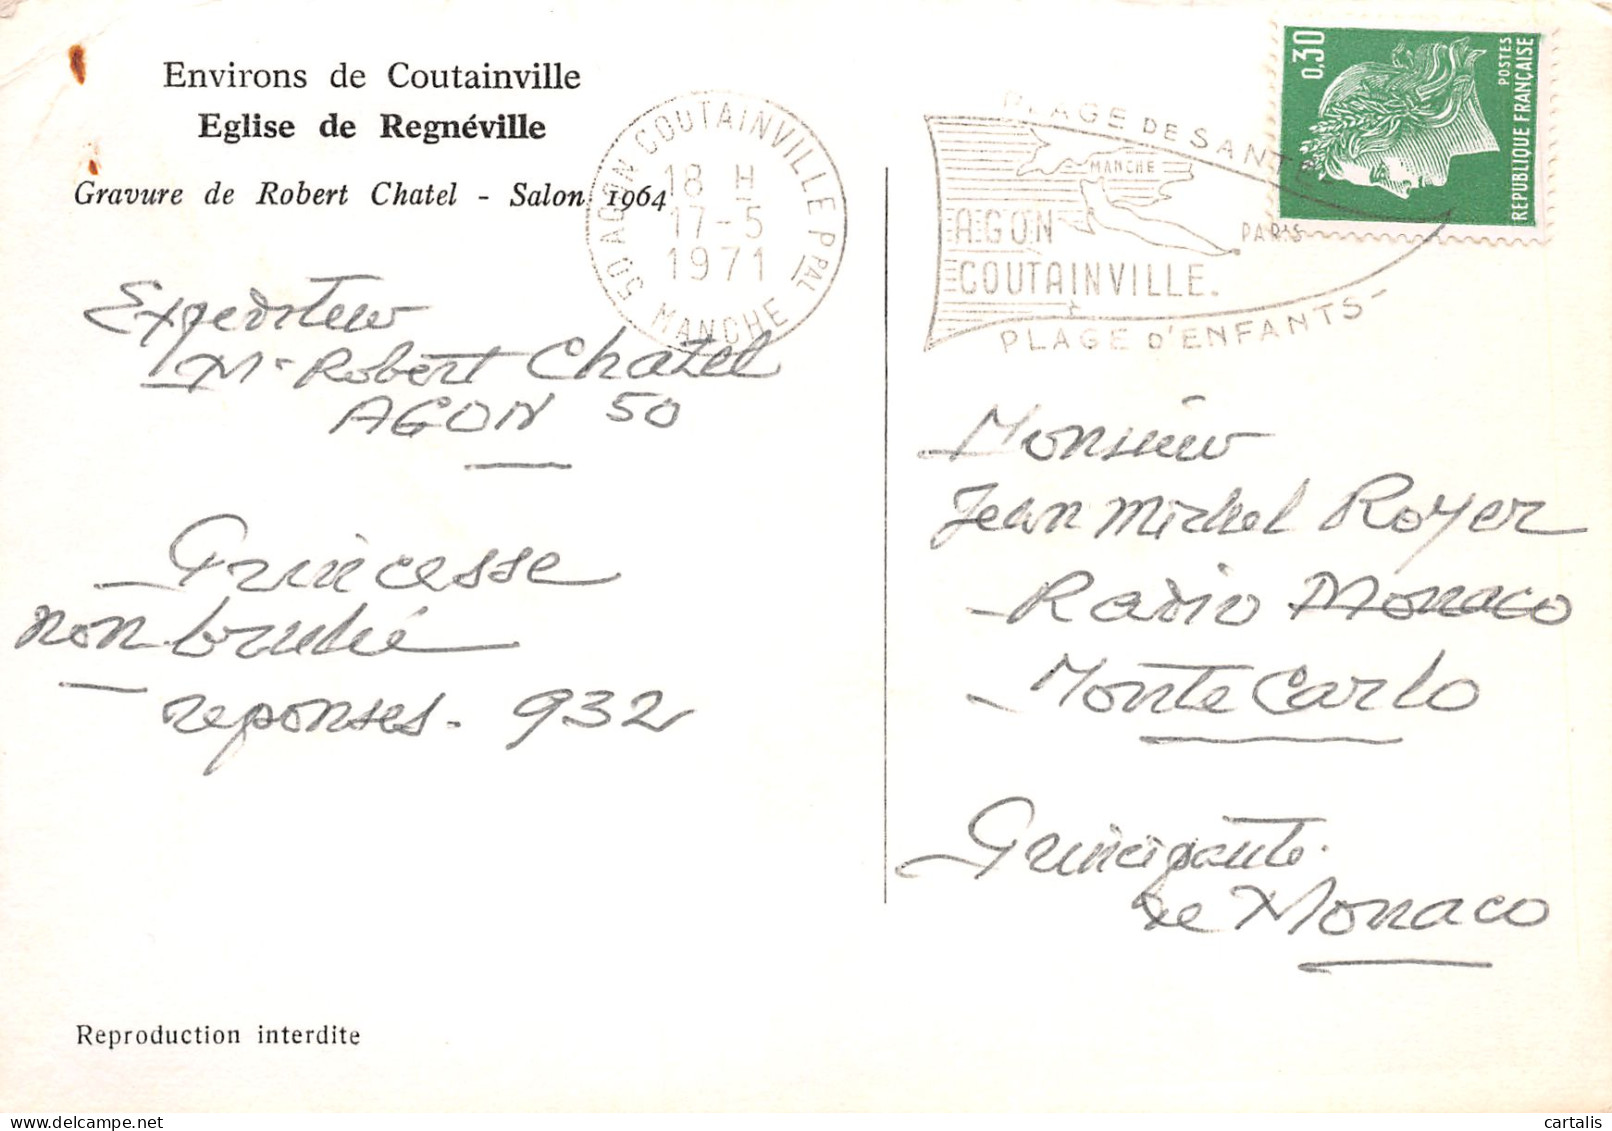 Environs de Coutainville
Eglise de Regnéville
Gravure de Robert Chatel - Salon 1964
50 AGON COUTAINVILLE PPAL
18 H
17-5
1971
MANCHE
PLAGE DE SANTÉ
MANCHE
AGON
PARIS
COUTAINVILLE.
PLAGE D'ENFANTS-
0,30
POSTES
REPUBLIQUE FRANÇAISE
Expediteur
Mr Robert Chatel
AGON 50
Princesse
non
reponses. 932
Monsieur
Jean Michel Royer
Radio Monaco
Monte Carlo
Principauté
de Monaco
Reproduction interdite
cartalis